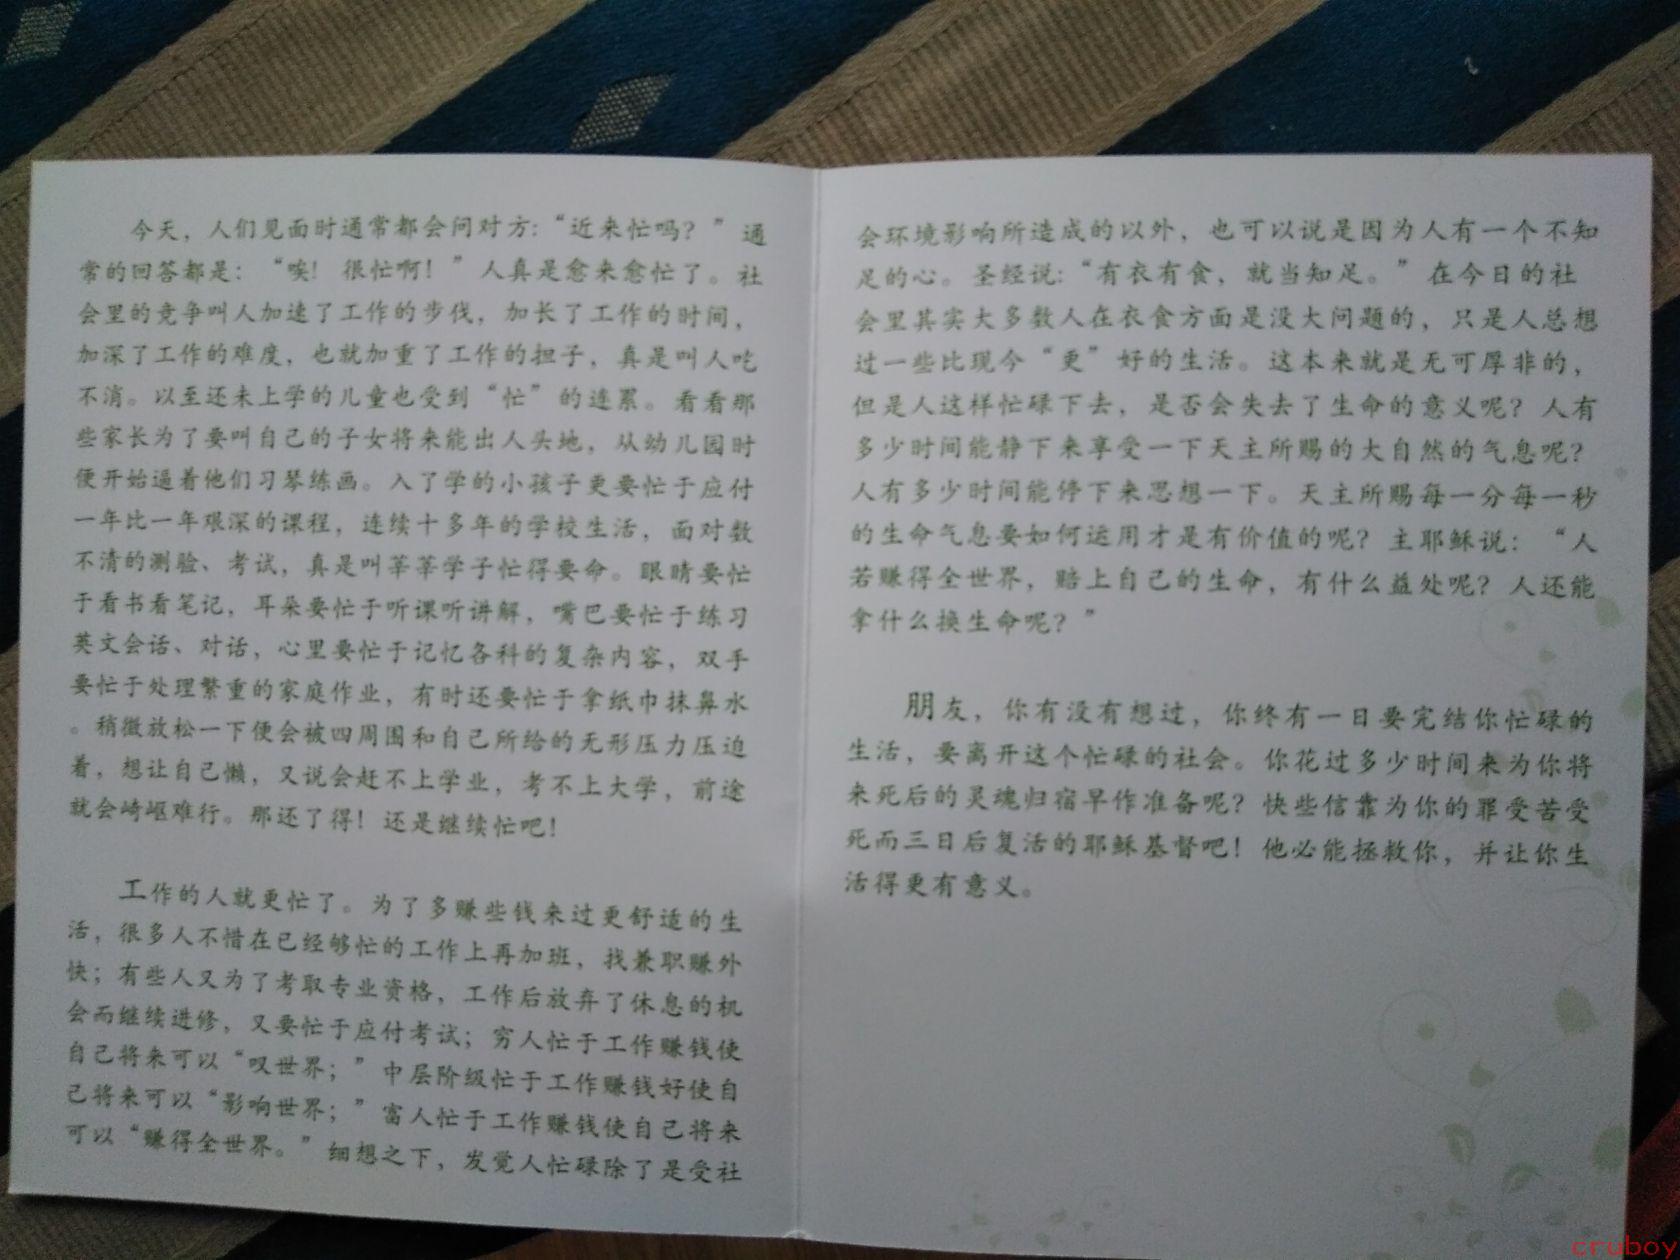 今天，人们见面时通常都会问对方：“近来忙吗？”通
常的回答都是：“唉！很忙啊！”人真是愈来愈忙了。社
会里的竞争叫人加速了工作的步伐，加长了工作的时间，
加深了工作的难度，也就加重了工作的担子，真是叫人吃
不消。以至还未上学的儿童也受到“忙”的连累。看看那
些家长为了要叫自己的子女将来能出人头地，从幼儿园时
便开始逼着他们习琴练画。入了学的小孩子更要忙于应付
一年比一年艰深的课程，连续十多年的学校生活，面对数
不清的测验、考试，真是叫莘莘学子忙得要命。眼睛要忙
于看书看笔记，耳朵要忙于听课听讲解，嘴巴要忙于练习
英文会话、对话，心里要忙于记忆各科的复杂内容，双手
要忙于处理繁重的家庭作业，有时还要忙于拿纸巾抹鼻水
。稍微放松一下便会被四周围和自己所给的无形压力压迫
着，想让自己懒，又说会赶不上学业，考不上大学，前途
就会崎岖难行。那还了得！还是继续忙吧！
工作的人就更忙了。为了多赚些钱来过更舒适的生
活，很多人不惜在已经够忙的工作上再加班，找兼职赚外
快；有些人又为了考取专业资格，工作后放弃了休息的机
会而继续进修，又要忙于应付考试；穷人忙于工作赚钱使
自己将来可以“叹世界；”中层阶级忙于工作赚钱好使自
己将来可以“影响世界；”富人忙于工作赚钱使自己将来
可以“赚得全世界。”细想之下，发觉人忙碌除了是受社
会环境影响所造成的以外，也可以说是因为人有一个不知
足的心。圣经说：“有衣有食，就当知足。”在今日的社
会里其实大多数人在衣食方面是没大问题的，只是人总想
过一些比现今“更”好的生活。这本来就是无可厚非的，
但是人这样忙碌下去，是否会失去了生命的意义呢？人有
多少时间能静下来享受一下天主所赐的大自然的气息呢？
人有多少时间能停下来思想一下。天主所赐每一分每一秒
的生命气息要如何运用才是有价值的呢？主耶稣说：“人
若赚得全世界，赔上自己的生命，有什么益处呢？人还能
拿什么换生命呢？”
朋友，你有没有想过，你终有一日要完结你忙碌的
生活，要离开这个忙碌的社会。你花过多少时间来为你将
来死后的灵魂归宿早作准备呢？快些信靠为你的罪受苦受
死而三日后复活的耶稣基督吧！他必能拯救你，并让你生
活得更有意义。
cruboy